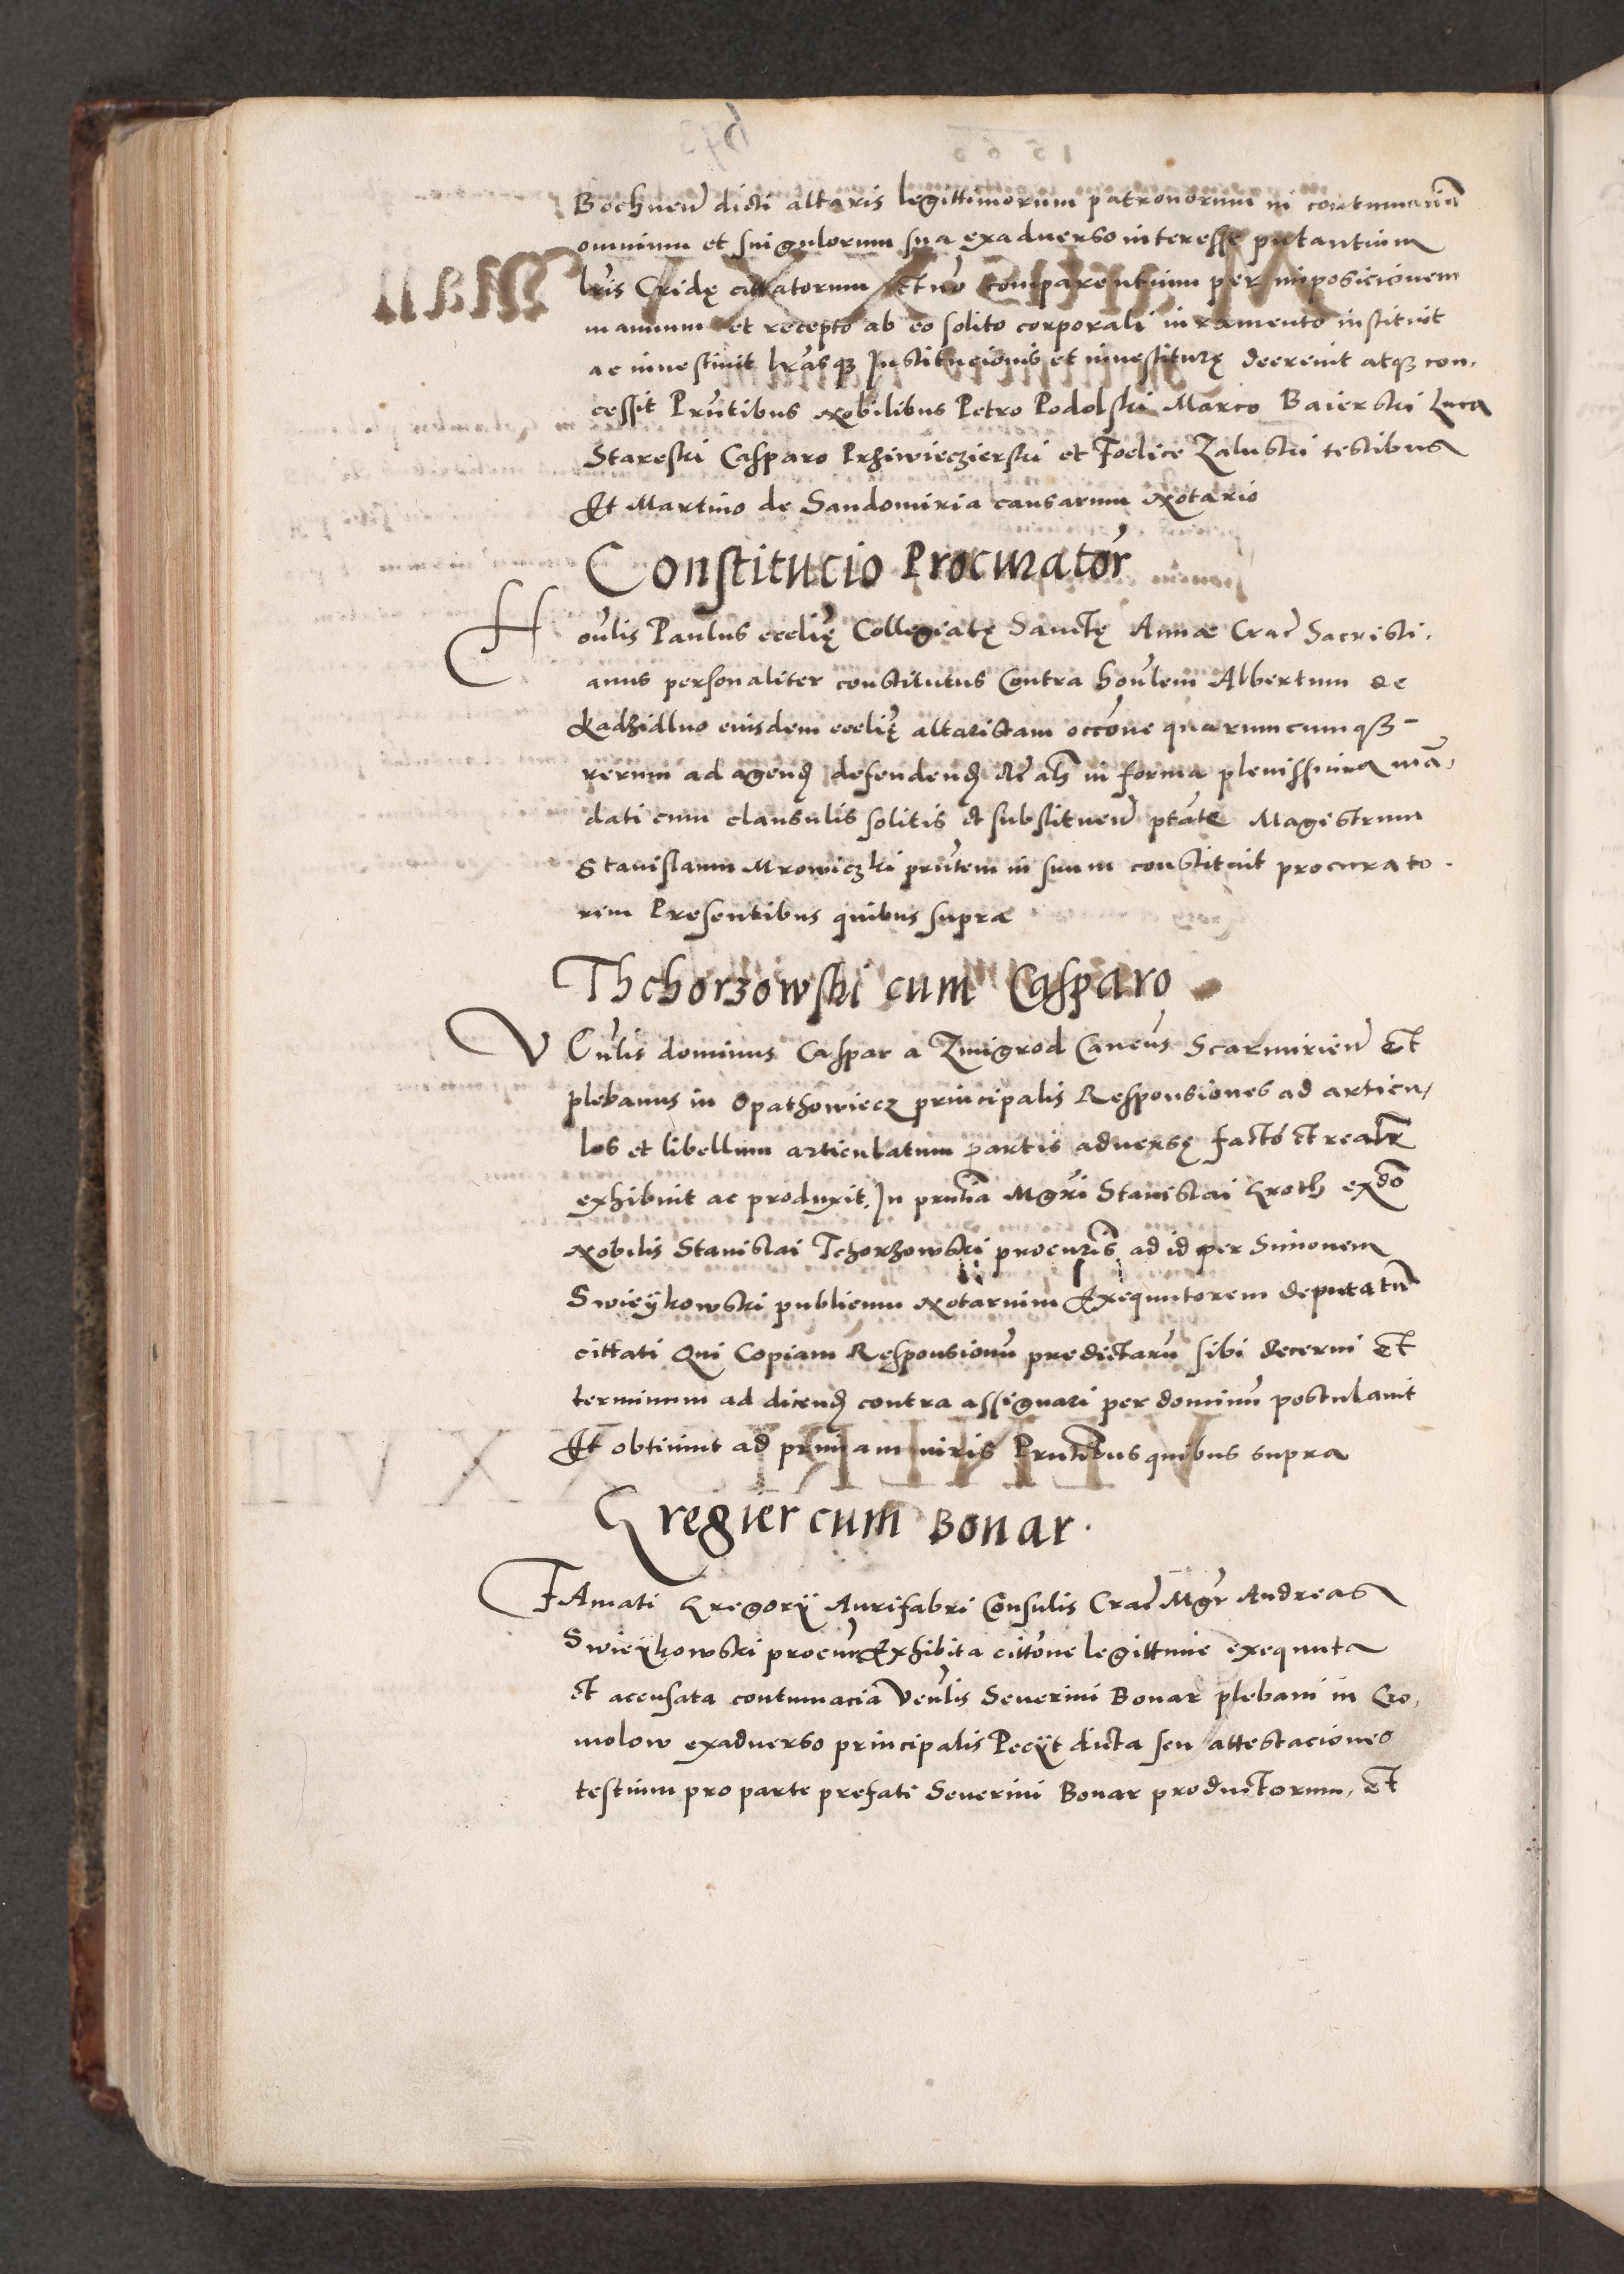 Bochnen̄ dicti altaris legittimorum patronorum in contumaciā
omnium et singulorum sua exadverso interesse putantium
lr̄is Cridę cittatorum et nō comparentium per imposicionem
manuum et recepto ab eo solito corporali iuramento instituit
ac investivit lr̄asqȝ Institucionis et investiturę decrevit atqȝ con,
cessit Pn̄tibus Nobilibus Petro Podolski Marco Baierski Luca
Stareski Casparo Przÿwieczierski et Foelice Zaluski testibus
Et Martino de Sandomiria causarum Notario
Constitucio Procurator̄
Hon̄lis Paulus eccl̄ię Collegiatę Sanctę Annæ Crac̄ Sacristi,
anus personaliter constitutus Contra hon̄lem Albertum de
Radzidluo eiusdem eccl̄ię altaristam occōne quarumcumqȝ
rerum ad agend̄ defendend̄ etc̄ al̄s in forma plenissima mā,
dati cum clausulis solitis et substituen̄ ptāte Magistrum
Stanislaum Mrowiczki pn̄tem in suum constituit procurato.
rem Presentibus quibus supra
Thchorzowski cum Casparo
Ven̄lis dominus Caspar a Zmigrod Canc̄us Scarmirien̄ Et
plebanus in Opathowiecz principalis Responsiones ad articu,
los et libellum articulatum partis adversę factō et realr̄
exhibuit ac produxit. In pn̄tia Mgr̄i Stanislai Groth exdō
Nobilis Stanislai Tchorzowski procurīs ad id per Simonem
Swieÿkowski publicum Notarium Exequutorem deputatū
cittati Qui Copiam Responsionū predictarū sibi decerni Et
terminum ad dicend̄ contra assignari per dominū postulavit
Et obtinuit ad primam iuris Pn̄tibus quibus supra
Gregier cum Bonar.
FAmati Gregorÿ Aurifabri Consulis Crac̄ Mgr̄ Andreas
Swieÿkowski procur̄ Exhibita cittōne legittime exequuta
et accusata contumacia Ven̄lis Severini Bonar plebani in Cro,
molow exadverso principalis Pecÿt dicta seu attestaciones
testium pro parte prefati Severini Bonar productorum, Et